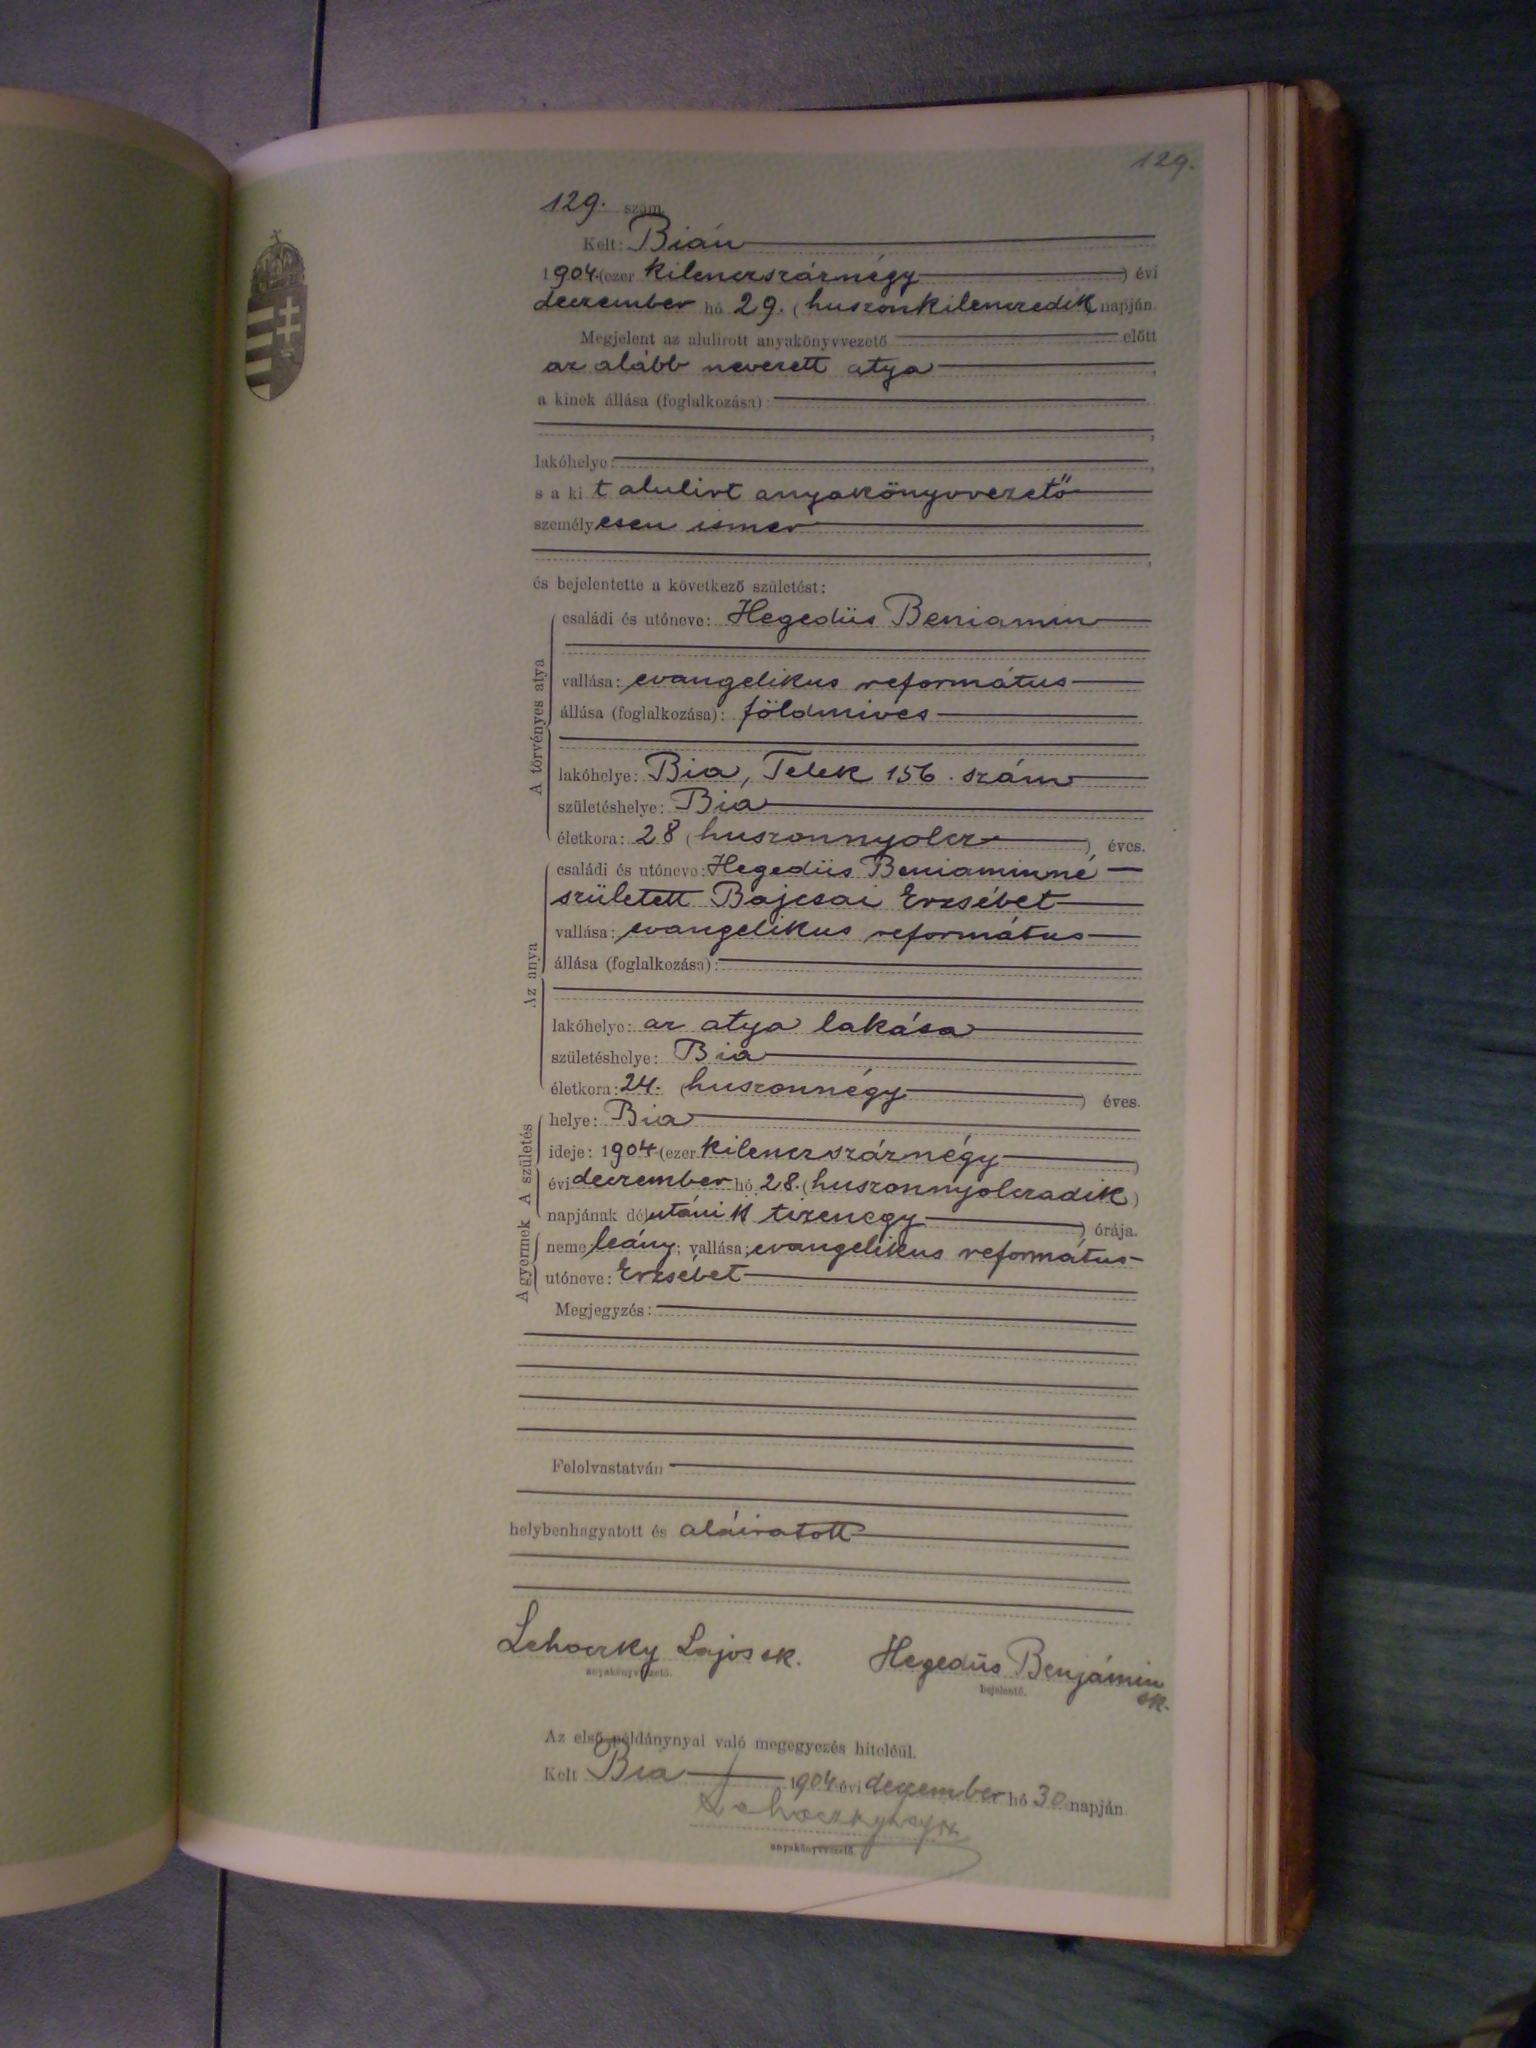 129.
129. szám.
Kelt: Bián
1904. (ezer kilenczszáznégy) évi
deczember hó 29. (huszonkilenczedik napján.
Megjelent az alulirott anyakönyvvezető előtt
az alább nevezett atya,
a kinek állása (foglalkozása):
lakóhelye:
s a ki t alulirt anyakönyvvezető
személyesen ismer
és bejelentette a következő születést:
A törvényes atya
családi és utóneve: Hegedüs Beniamin
vallása: evangelikus református
állása (foglalkozása): földmives
lakóhelye: Bia, Telek 156. szám
születéshelye: Bia
életkora: 28 (huszonnyolcz) éves.
Az anya
családi és utóneve: Hegedüs Beniaminné
született Bajcsai Erzsébet
vallása: evangelikus református
állása (foglalkozása):
lakóhelye: az atya lakása
születéshelye: Bia
életkora: 24. (huszonnégy) éves.
A születés
helye: Bia
ideje: 1904 (ezer kilenczszáznégy)
évi deczember hó 28. (huszonnyolczadik)
napjának délutáni 11 tizenegy) órája.
A gyermek
neme: leány; vallása: evangelikus református
utóneve: Erzsébet
Megjegyzés:
Felolvastatván
helybenhagyatott és aláiratott
Lehoczky Lajos sk. Hegedüs Benjámin
sk.
anyakönyvvezető. bejelentő.
Az első példánynyal való megegyezés hiteléül.
Kelt Bia 1904 évi deczember hó 30 napján
Lehoczky Lajos
anyakönyvvezető.